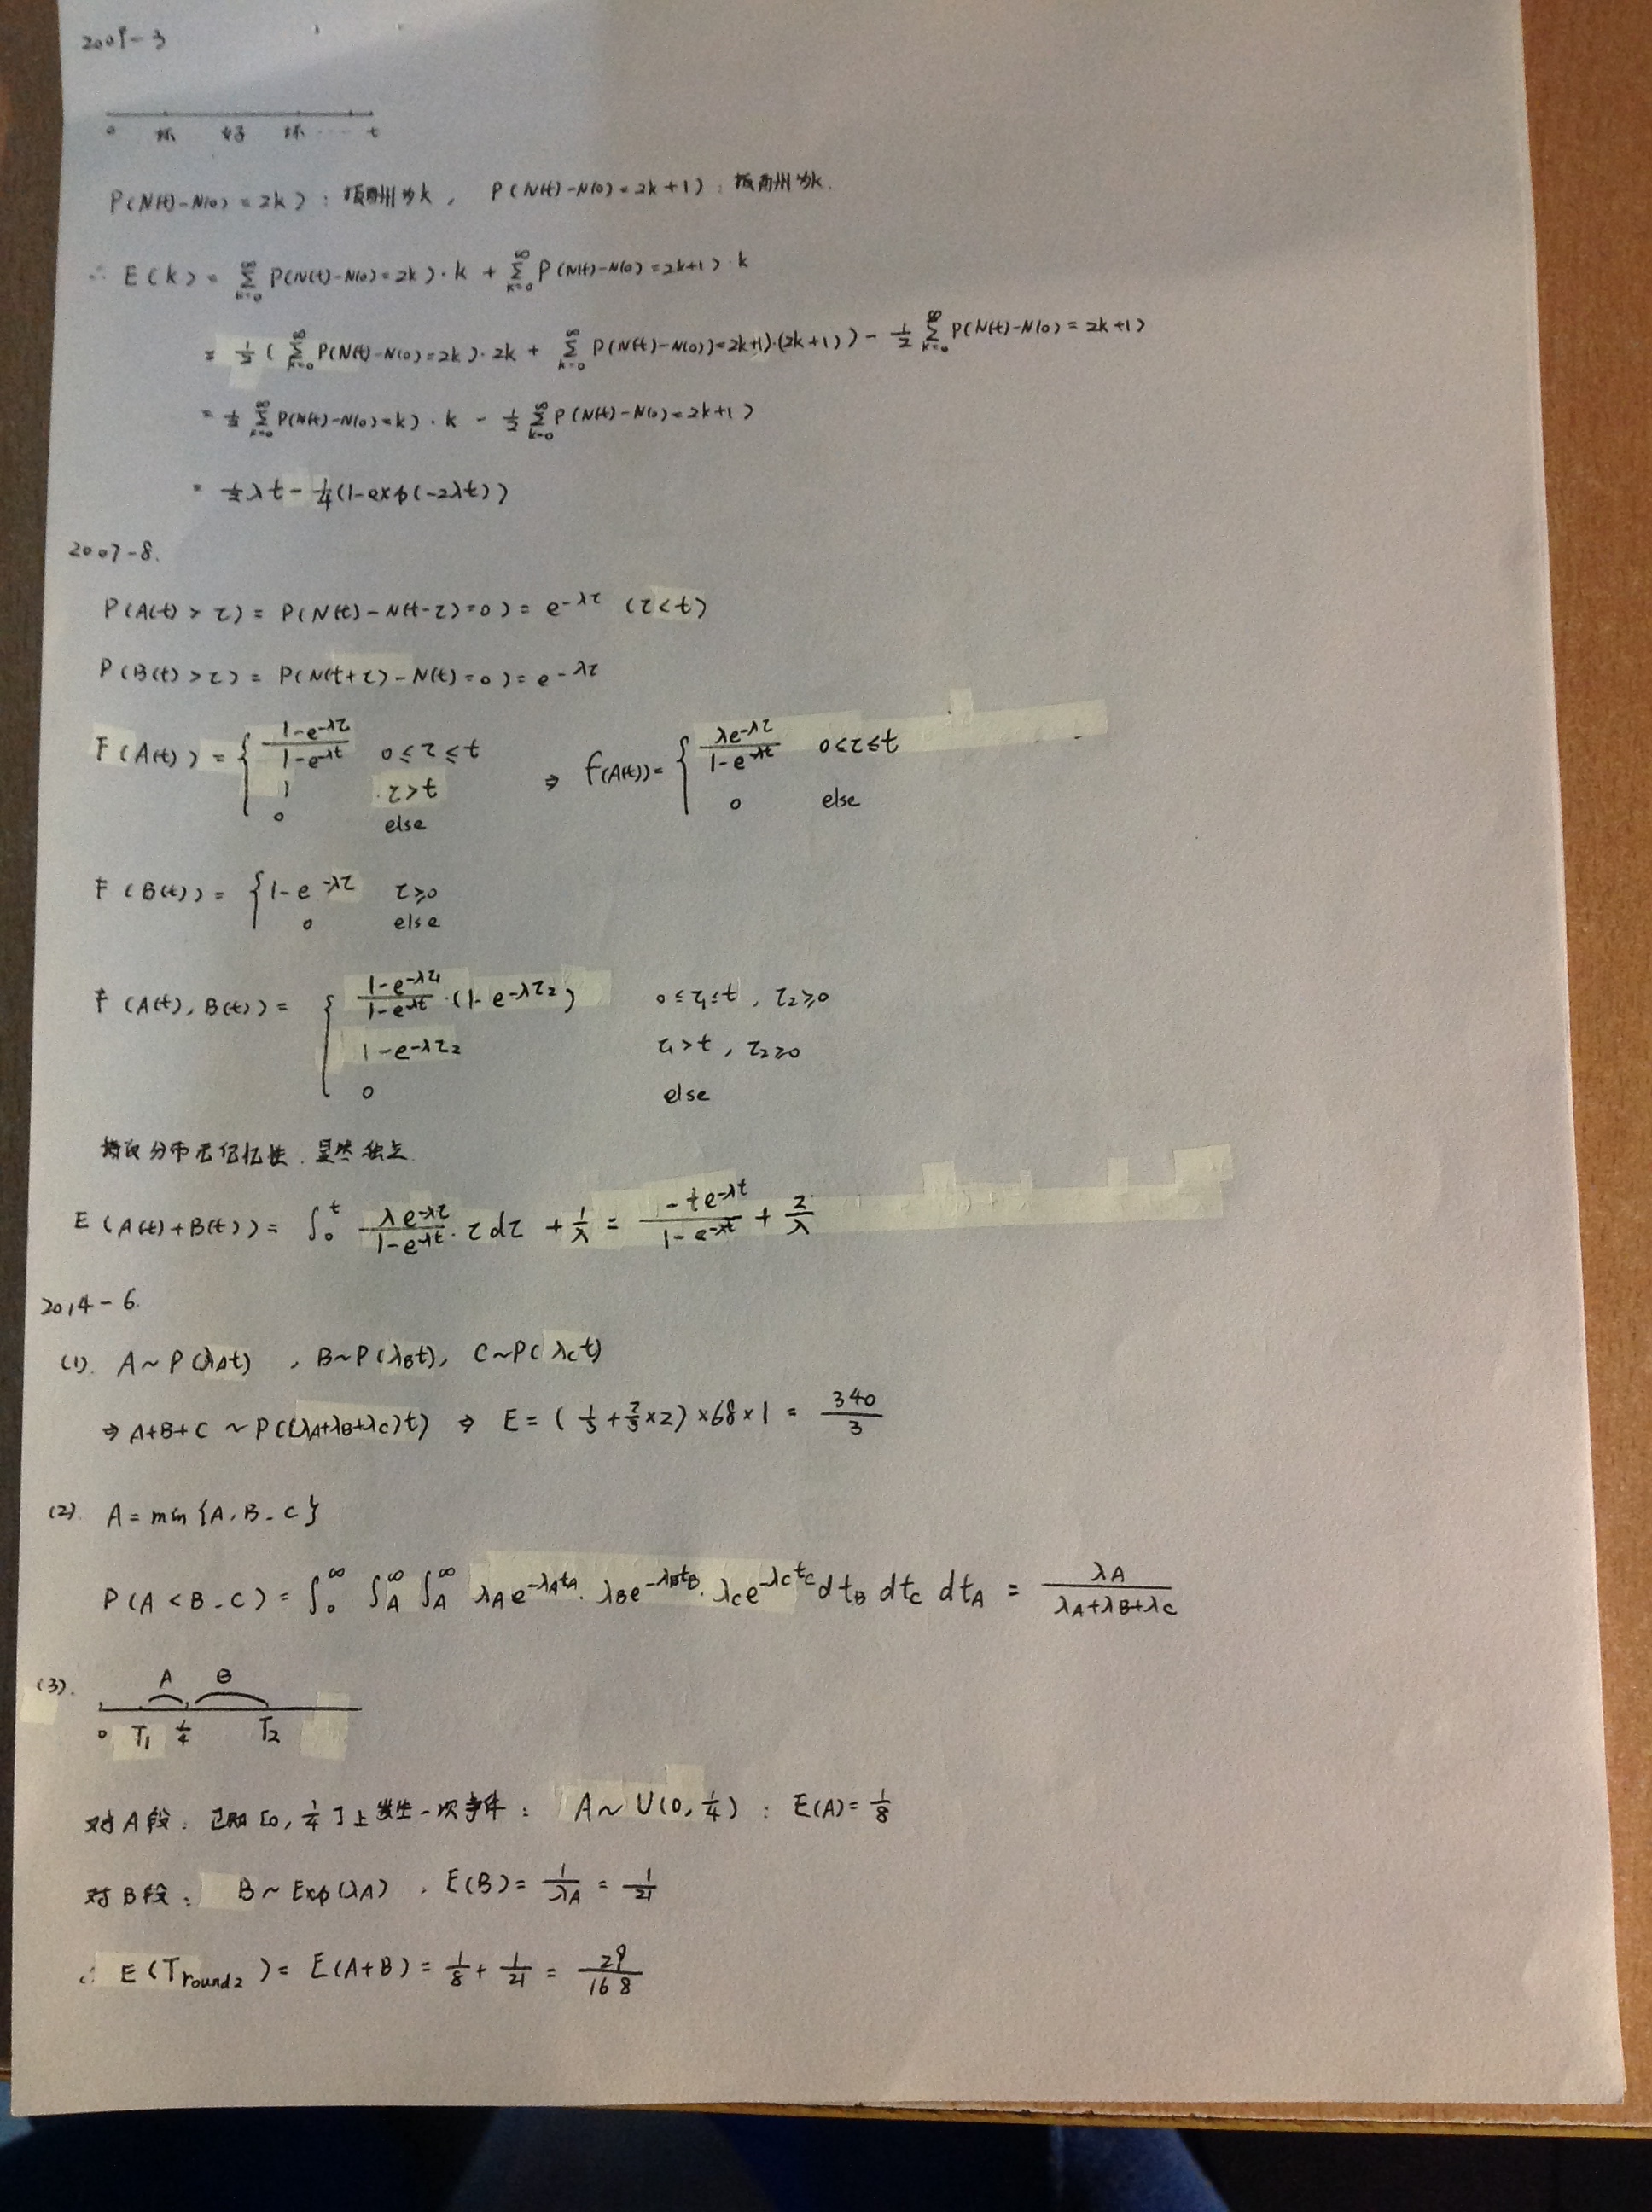 2009-3
0 坏 好 坏 ···· t
P(N(t)-N(0)=2k): 报酬为k, P(N(t)-N(0)=2k+1): 报酬为k.
∴ E(k) = ∑_{k=0}^{∞} P(N(t)-N(0)=2k)·k + ∑_{k=0}^{∞} P(N(t)-N(0)=2k+1)·k
= 1/2 ( ∑_{k=0}^{∞} P(N(t)-N(0)=2k)·2k + ∑_{k=0}^{∞} P(N(t)-N(0))=2k+1)·(2k+1) ) - 1/2 ∑_{k=0}^{∞} P(N(t)-N(0)=2k+1)
= 1/2 ∑_{k=0}^{∞} P(N(t)-N(0)=k)·k - 1/2 ∑_{k=0}^{∞} P(N(t)-N(0)=2k+1)
= 1/2 λt - 1/4 (1-exp(-2λt))
2007-8.
P(A(t)>τ) = P(N(t)-N(t-τ)=0) = e^{-λτ} (τ<t)
P(B(t)>τ) = P(N(t+τ)-N(t)=0) = e^{-λτ}
F(A(t)) = { (1-e^{-λτ})/(1-e^{-λt}) 0≤τ≤t ⇒ f(A(t)) = { λe^{-λτ}/(1-e^{-λt}) 0≤τ≤t
1 τ>t 0 else
0 else
F(B(t)) = { 1-e^{-λτ} τ≥0
0 else
F(A(t), B(t)) = { (1-e^{-λτ1})/(1-e^{-λt})·(1-e^{-λτ2}) 0≤τ1≤t, τ2≥0
1-e^{-λτ2} τ1>t, τ2≥0
0 else
指数分布无记忆性, 显然独立
E(A(t)+B(t)) = ∫_0^t λe^{-λτ}/(1-e^{-λt})·τdτ + 1/λ = -te^{-λt}/(1-e^{-λt}) + 2/λ
2014-6.
(1). A~P(λ_A t), B~P(λ_B t), C~P(λ_C t)
⇒ A+B+C ~ P((λ_A+λ_B+λ_C)t) ⇒ E = (1/3 + 2/3×2)×68×1 = 340/3
(2). A = min{A, B, C}
P(A<B, C) = ∫_0^∞ ∫_A^∞ ∫_A^∞ λ_A e^{-λ_A t_A}·λ_B e^{-λ_B t_B}·λ_C e^{-λ_C t_C} dt_B dt_C dt_A = λ_A/(λ_A+λ_B+λ_C)
(3). A B
0 T_1 1/4 T_2
对A段: 已知[0, 1/4]上发生一次事件: A~U(0, 1/4): E(A)=1/8
对B段: B~Exp(λ_A), E(B)=1/λ_A = 1/21
∴ E(T_{round2}) = E(A+B) = 1/8 + 1/21 = 29/168